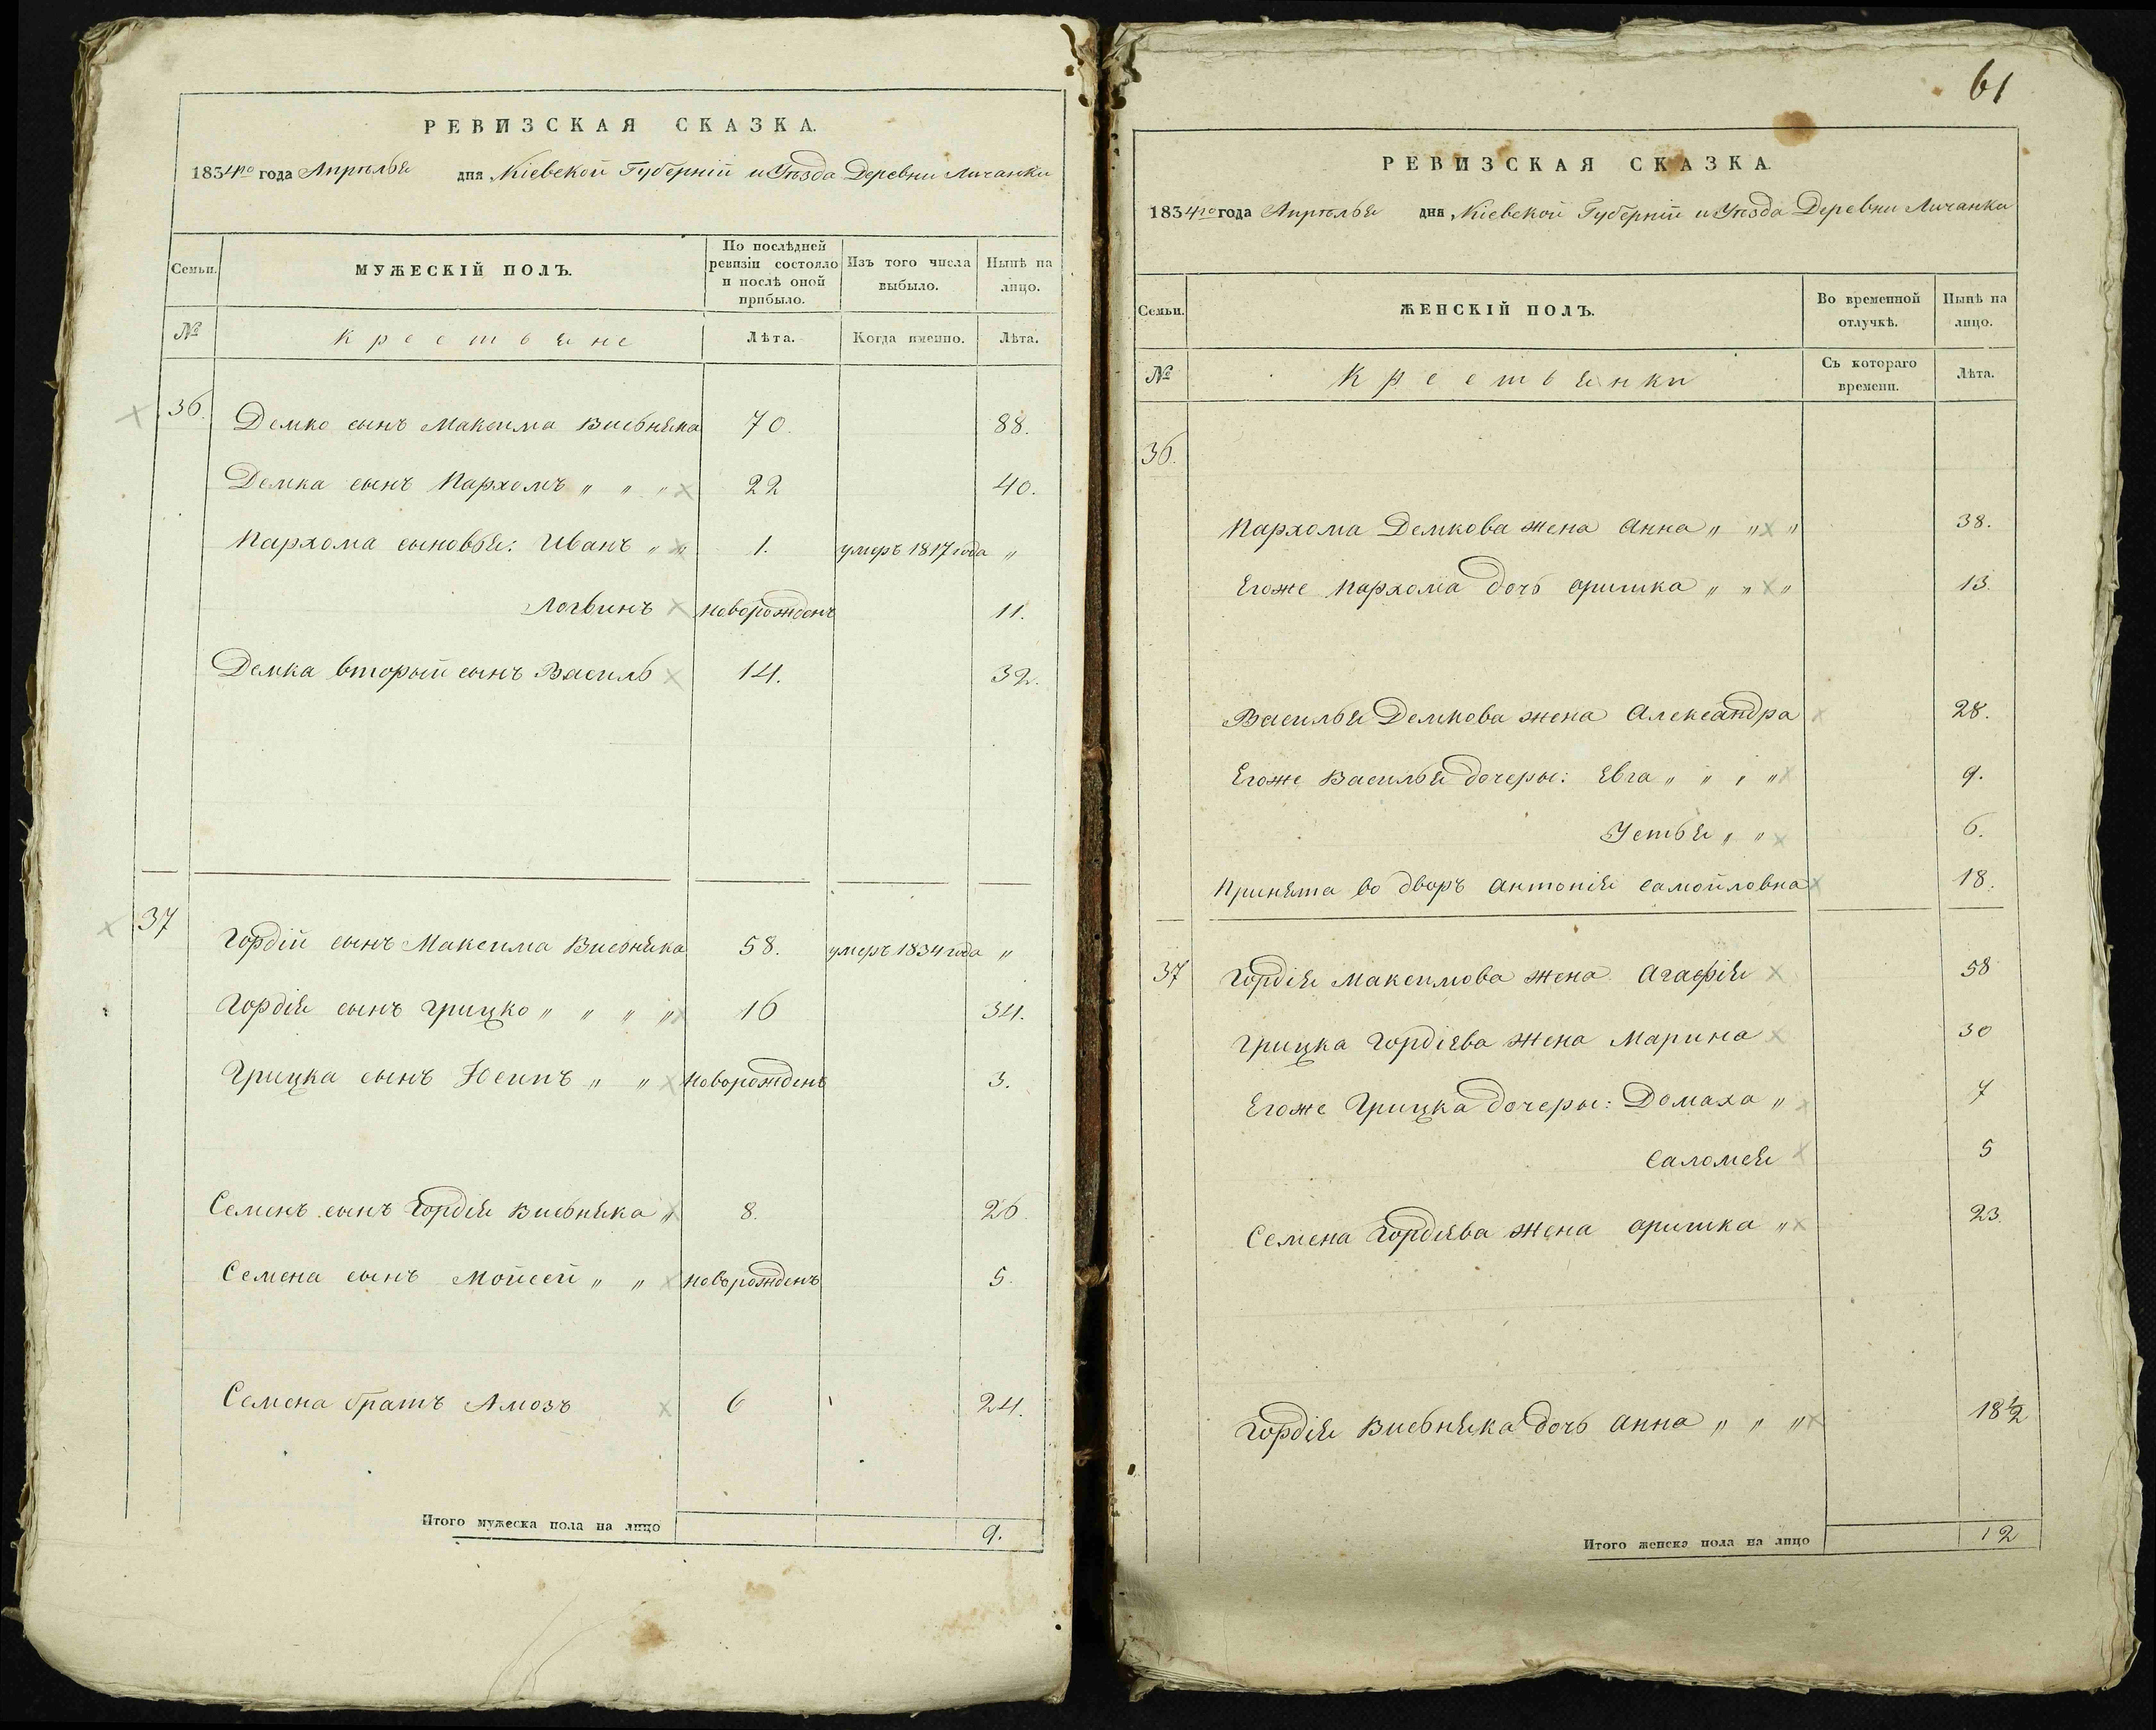 РЕВИЗСКАЯ СКАЗКА.
1834го года Апрѣлья дня Кіевской Губерніи и Уѣзда Деревни Личанки
Семьи. МУЖЕСКІЙ ПОЛЪ. По послѣдней ревизіи состояло и послѣ оной прибыло. Изъ того числа выбыло. Нынѣ на лицо.
№ Крестьяне Лѣта. Когда именно. Лѣта.
36. Демко сынъ Максима Висьняка 70. 88.
Демка сынъ Пархомъ „ „ „ 22 40.
Пархома сыновья: Иванъ „ „ 1. умеръ 1817 года „
Логвинъ новорожденъ 11.
Демка вторый сынъ Василь 14. 32.
37 Гордій сынъ Максима Висьняка 58. умеръ 1834 года „
Гордія сынъ Грицко „ „ „ „ 16 34.
Грицка сынъ Іосипъ „ „ новорожденъ 3.
Семенъ сынъ Гордія Висьняка „ 8. 26.
Семена сынъ Мойсей „ „ новорожденъ 5.
Семена братъ Амозъ 6 24.
Итого мужеска пола на лицо 9.
61
РЕВИЗСКАЯ СКАЗКА.
1834го года Апрѣлья дня Кіевской Губерніи и Уѣзда Деревни Личанки
Семьи. ЖЕНСКІЙ ПОЛЪ. Во временной отлучкѣ. Нынѣ на лицо.
№ Крестьянки Съ котораго времени. Лѣта.
36.
Пархома Демкова жена Анна „ „ „ 38.
Егоже Пархома дочь Оришка „ „ „ 13.
Василья Демкова жена Александра 28.
Егоже Василья дочеры: Евга „ „ „ „ 9.
Устья „ „ 6.
Принята во дворъ Антонія Самойловна 18.
37 Гордія Максимова жена Агафія 58
Грицка Гордіева жена Марина 30
Егоже Грицка дочеры: Домаха „ 7
Саломея 5
Семена Гордіева жена Оришка „ 23.
Гордія Висьняка дочь Анна „ „ „ 18 1/2
Итого женска пола на лицо 12